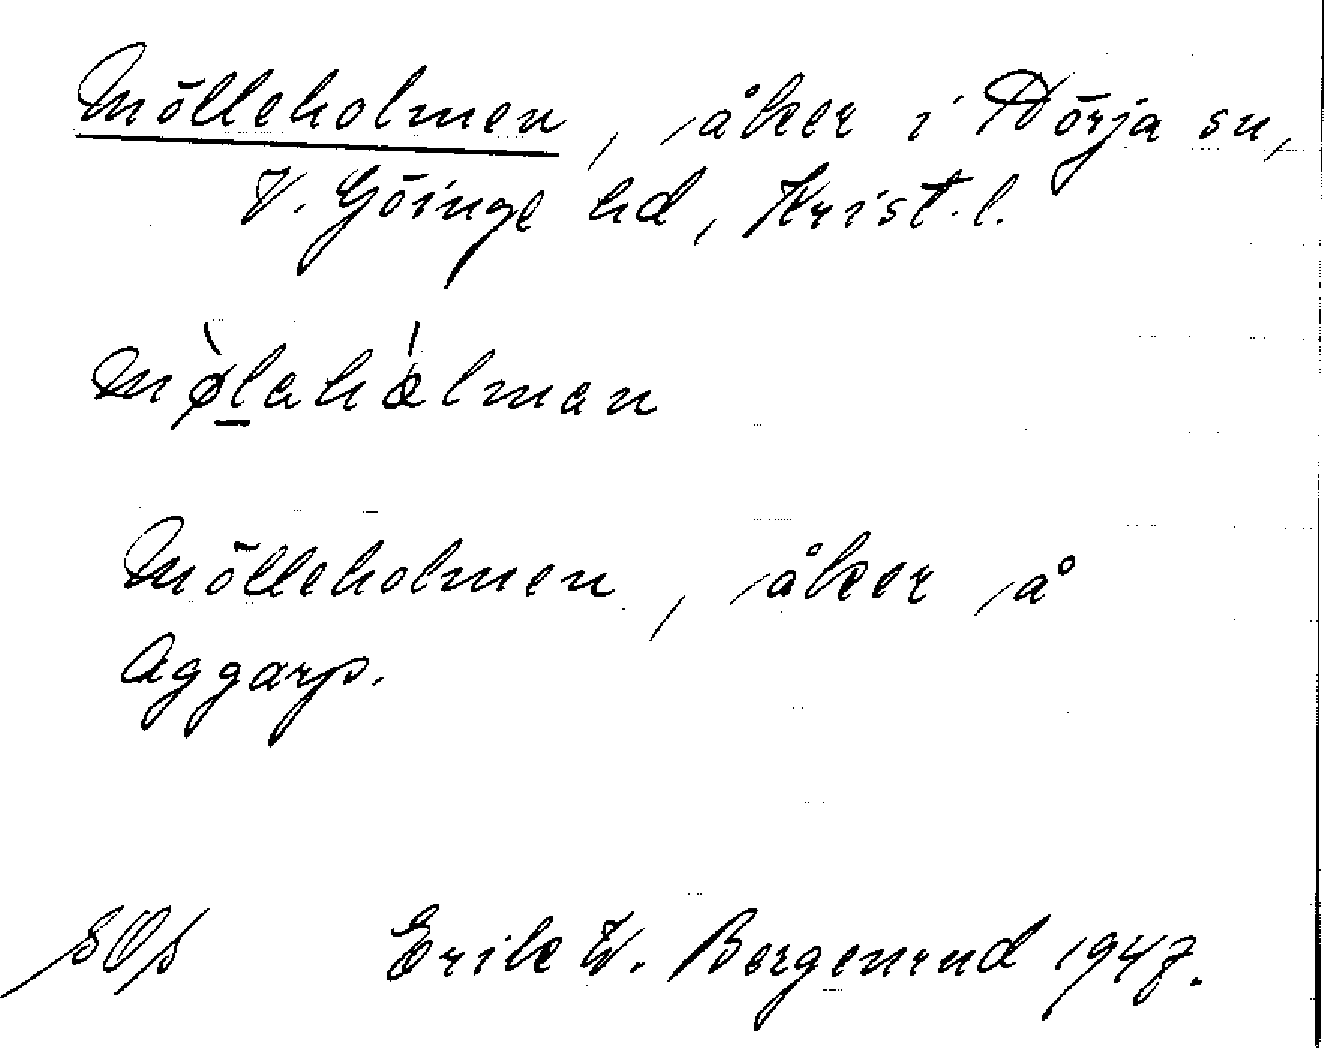 Mölleholmen, åker i Nörja sn,
V. Göinge hd, Krist. l.
mø̀lahålman
Mölleholmen, åker å
Aggarp.
Erik W. Bergenrud 1947.